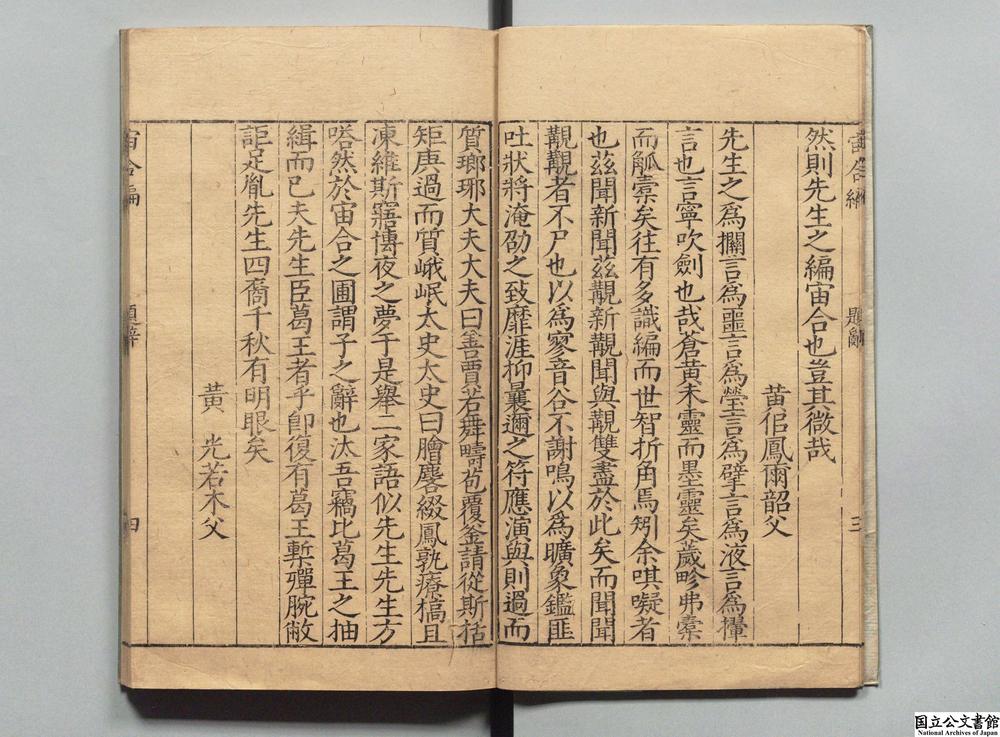 宙合編
題辭
三
然則先生之編宙合也豈其微哉
黃佀鳳爾韶父
先生之爲攔言爲噩言爲瑩言爲擘言爲液言爲攆
言也言寧吹劍也哉倉黃未靈而墨靈矣歲畛弗橐
而觚橐矣往有多識編而世智折角焉矧余唭㘈者
也茲聞新聞茲覯新覯聞與覯雙盡於此矣而聞聞
覯覯者不尸也以爲寥音谷不謝鳴以爲曠象鑑匪
吐狀將淹劭之致靡涯抑曩邇之符應演與則過而
質瑯琊大夫大夫曰善賈若舞疇苞覆釜請從斯括
矩庚過而質峨岷太史太史曰膾麐綴鳳孰療槁且
凍維斯寤博夜之夢于是舉二家語似先生先生方
嗒然於宙合之圃謂子之辭也汰吾竊比葛王之抽
緝而已夫先生臣葛王者乎卽復有葛王槧殫腕敝
詎足胤先生四裔千秋有明眼矣
黃 光若木父
宙合編
題辭
四
国立公文書館
National Archives of Japan